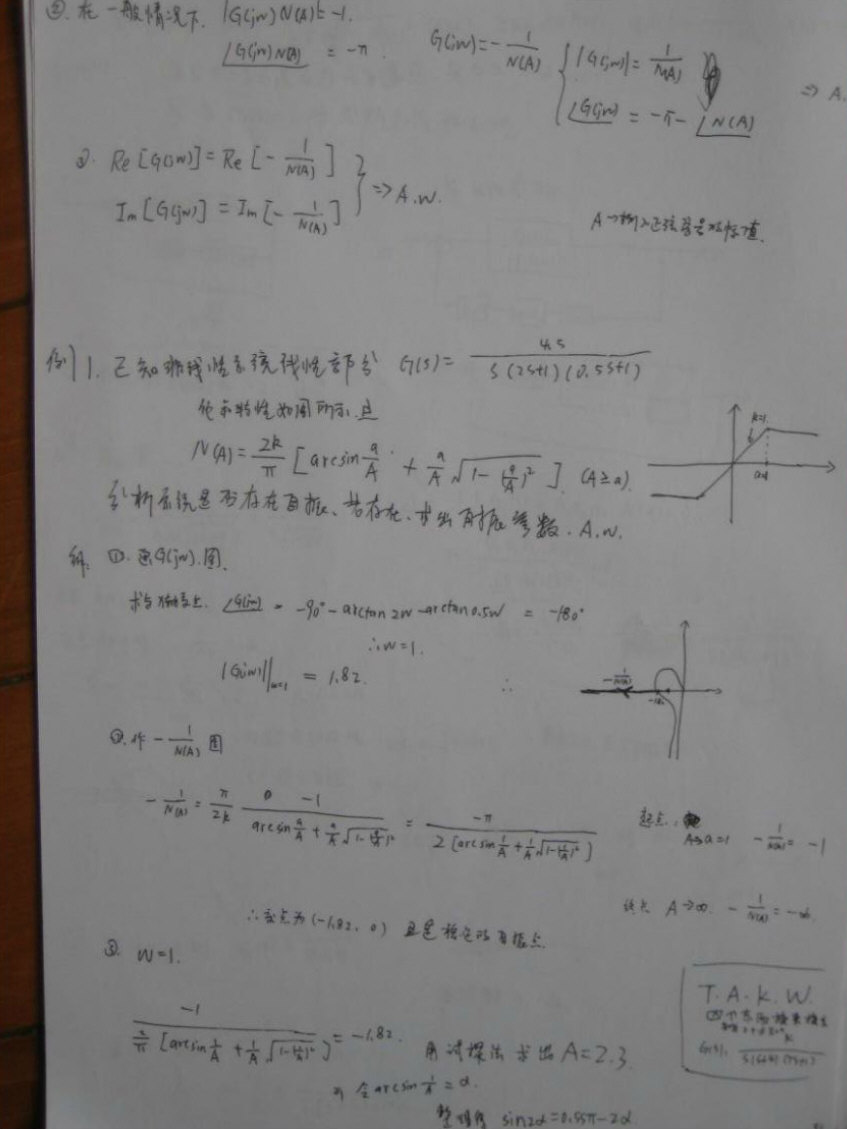 ② 在一般情况下. |G(jw)N(A)|=1.
∠G(jw)N(A) = -π. G(jw)=-1/N(A) { |G(jw)|=1/N(A)
∠G(jw) = -π-∠N(A) ⇒ A.
②. Re[G(jw)]=Re[-1/N(A)]
Im[G(jw)]=Im[-1/N(A)] } ⇒ A.w.
A→输入正弦信号
例1. 已知非线性系统线性部分 G(s)= 4.5/(s(2s+1)(0.5s+1))
特性如图所示.且
k=1
N(A)=2k/π [arcsin a/A + a/A √(1-(a/A)²)]. (A≥a)
a=1
分析系统是否存在自振、若存在、求出自振参数.A.w.
解: ①.画G(jw).图.
求与 ∠G(jw) = -90°-arctan2w-arctan0.5w = -180°
∴w=1.
|G(jw)||w=1 = 1.82. ∴
-1/N(A)
②.作 -1/N(A) 图
-1/N(A) = π/2k · -1/(arcsin a/A + a/A √(1-(a/A)²)) = -π/(2[arcsin 1/A + 1/A √(1-(1/A)²)])
起点: A→a=1 -1/N(A) = -1
终点 A→∞. -1/N(A) = -∞.
∴交点为(-1.82, 0) 且是稳定的自振点.
③. w=1.
-1/(2/π [arcsin 1/A + 1/A √(1-(1/A)²)]) = -1.82. 用试探法求出A=2.3
令arcsin 1/A = α.
整理得 sin2α=0.55π-2α
T.A.K.W.
G(s)=